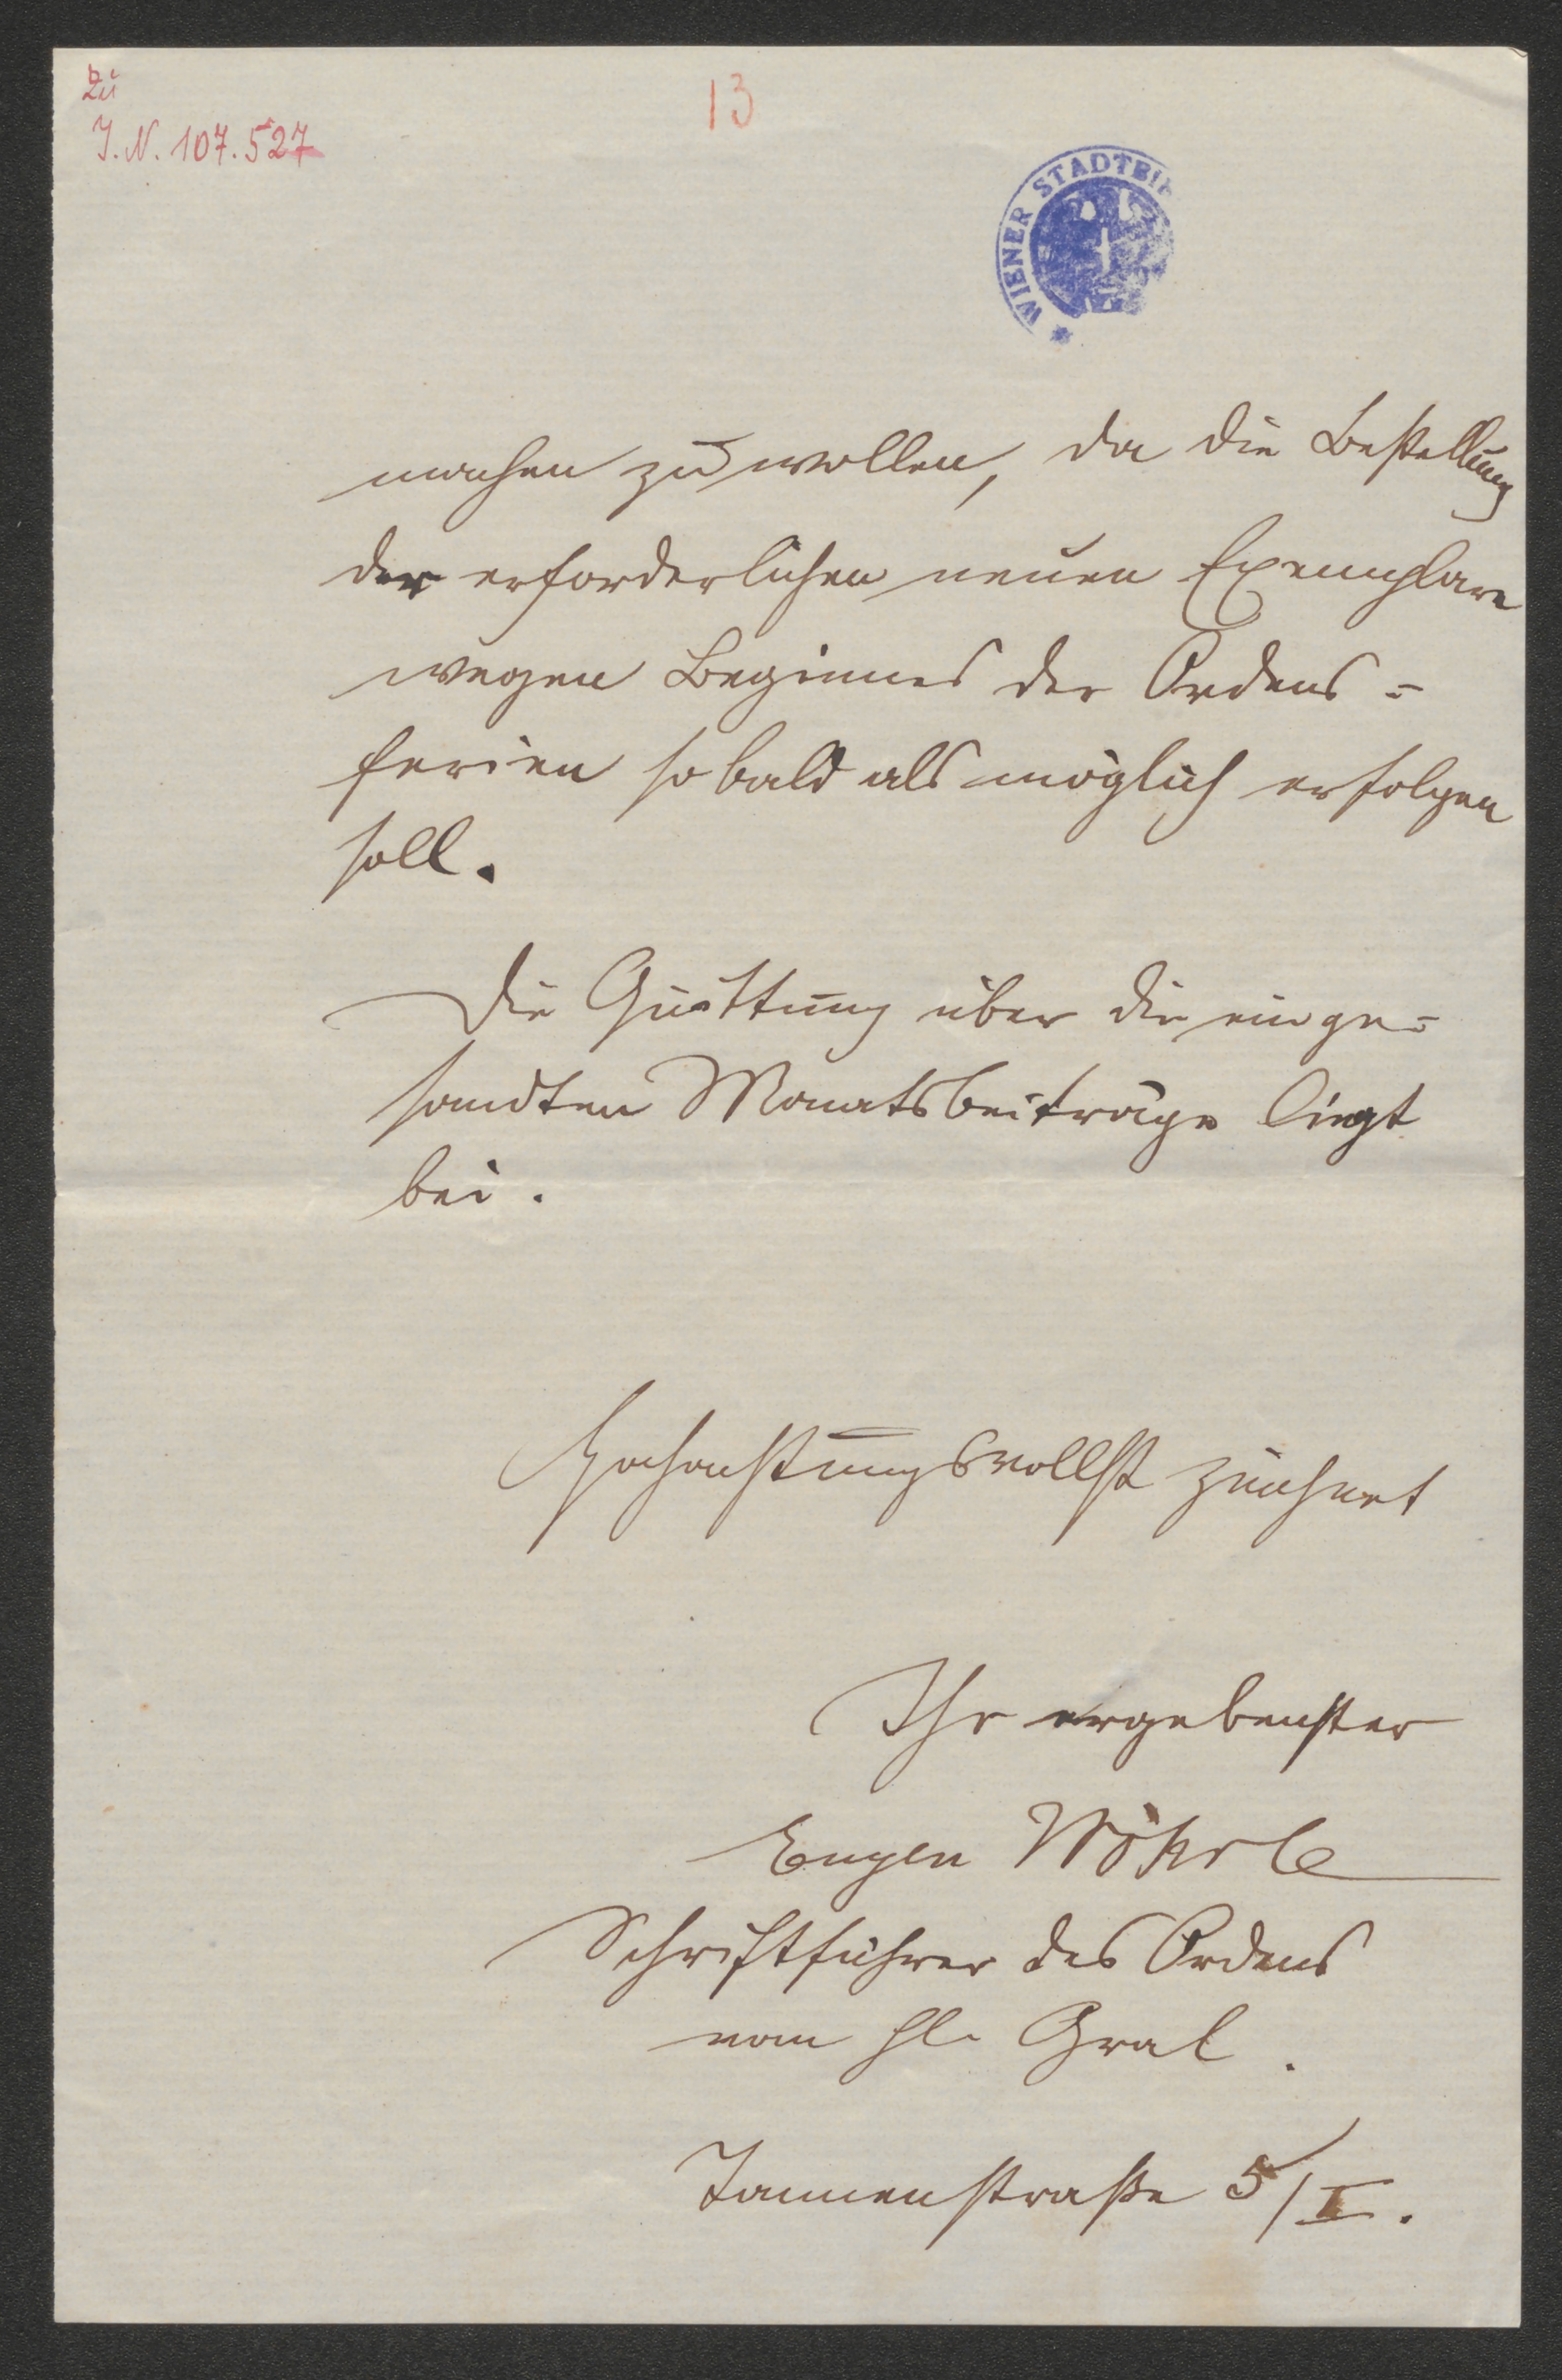 zu
I. N. 107.527
13
WIENER STADTBI
machen zu wollen, da die Bestellung
der erforderlichen neuen Exemplare
wegen Beginnes der Ordens-
ferien sobald als möglich erfolgen
soll.
Die Quittung über die einge-
sandten Monatsbeiträge liegt
bei.
Hochachtungsvollst zeichnet
Ihr ergebenster
Eugen Wöhrle
Schriftführer des Ordens
vom hl. Gral.
Tannenstraße 5/I.